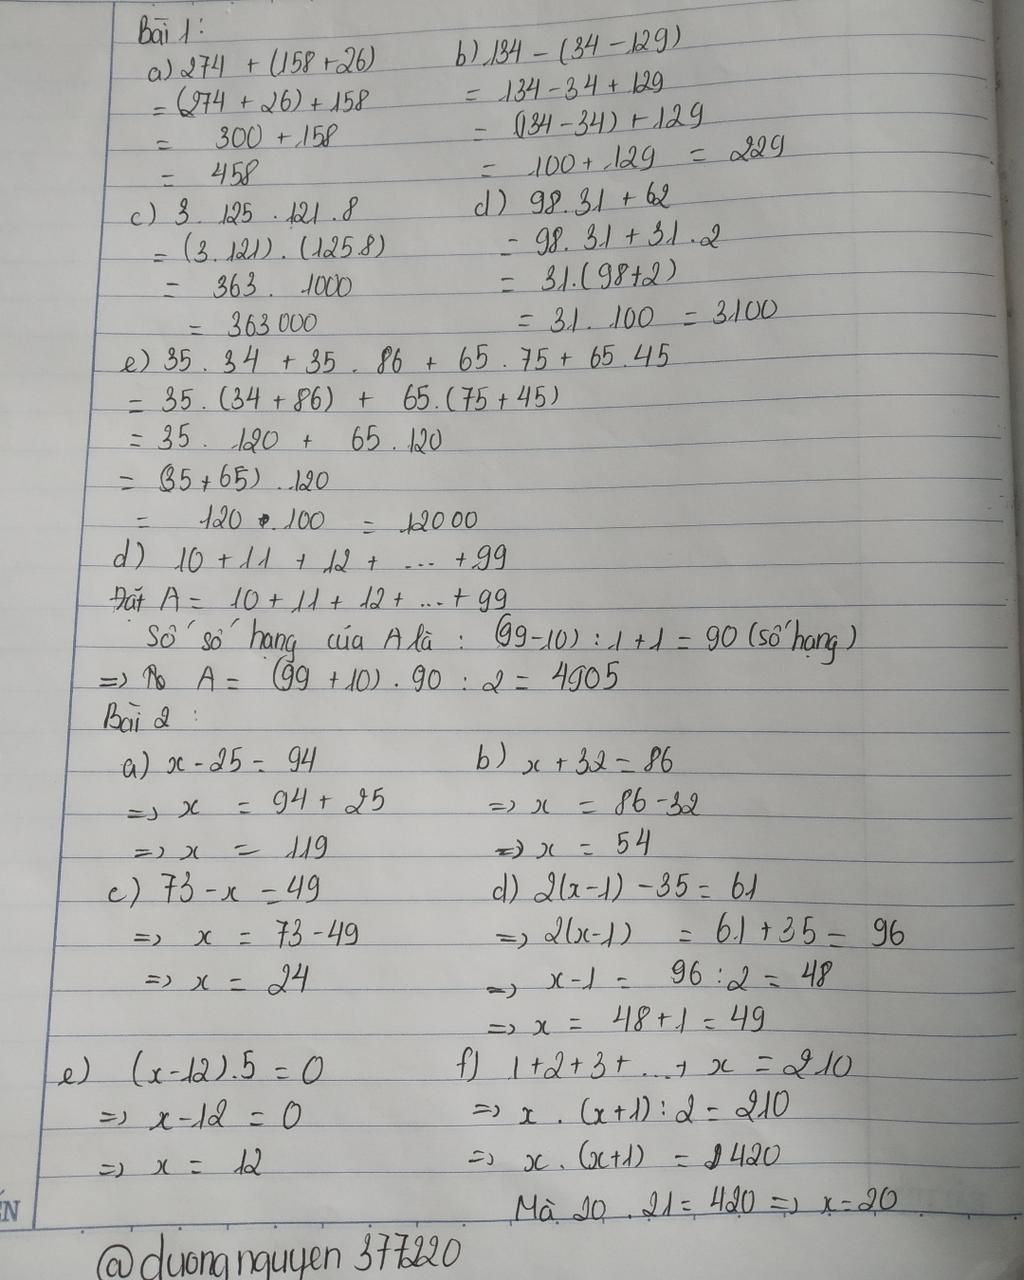 Bài 1:
a) 274 + (158 + 26)
= (274 + 26) + 158
= 300 + 158
= 458
b) 134 - (34 - 129)
= 134 - 34 + 129
= (134 - 34) + 129
= 100 + 129 = 229
c) 3 . 125 . 121 . 8
= (3 . 121) . (125 8)
= 363 . 1000
= 363 000
d) 98 . 31 + 62
= 98 . 31 + 31 . 2
= 31 . (98 + 2)
= 31 . 100 = 3100
e) 35 . 34 + 35 . 86 + 65 . 75 + 65 . 45
= 35 . (34 + 86) + 65 . (75 + 45)
= 35 . 120 + 65 . 120
= (35 + 65) . 120
= 120 . 100 = 12000
d) 10 + 11 + 12 + ... + 99
Đặt A = 10 + 11 + 12 + ... + 99
Số số hạng của A là : (99 - 10) : 1 + 1 = 90 (số hạng)
=> A = (99 + 10) . 90 : 2 = 4905
Bài 2 :
a) x - 25 = 94
=> x = 94 + 25
=> x = 119
b) x + 32 = 86
=> x = 86 - 32
=> x = 54
c) 73 - x = 49
=> x = 73 - 49
=> x = 24
d) 2(x - 1) - 35 = 61
=> 2(x - 1) = 61 + 35 = 96
=> x - 1 = 96 : 2 = 48
=> x = 48 + 1 = 49
e) (x - 12) . 5 = 0
=> x - 12 = 0
=> x = 12
f) 1 + 2 + 3 + ... + x = 210
=> x . (x + 1) : 2 = 210
=> x . (x + 1) = 420
Mà 20 . 21 = 420 => x = 20
@duongnguyen 377220